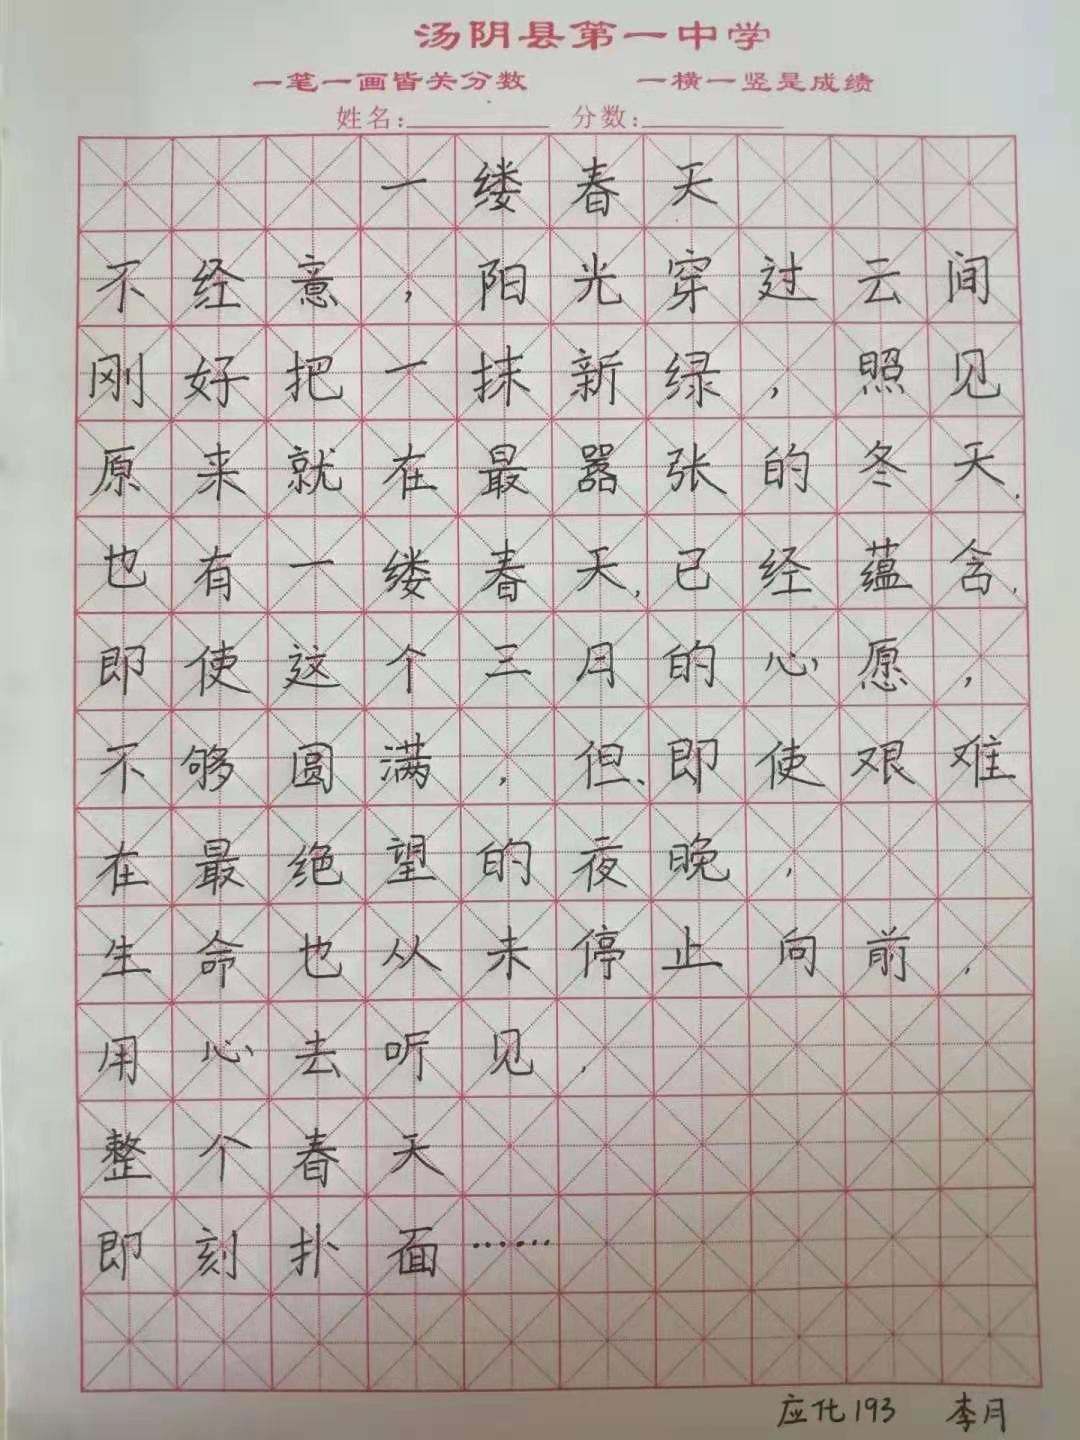 汤阴县第一中学
一笔一画皆关分数 一横一竖是成绩
姓名: 分数:
一缕春天
不经意，阳光穿过云间
刚好把一抹新绿，照见
原来就在最嚣张的冬天.
也有一缕春天,已经蕴含.
即使这个三月的心愿，
不够圆满，但、即使艰难
在最绝望的夜晚，
生命也从未停止向前，
用心去听见，
整个春天
即刻扑面……
应化193 李月